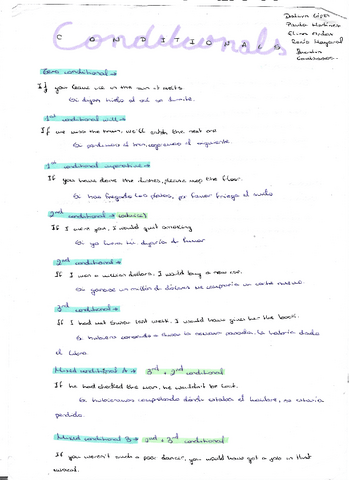 Conditionals
CONDITIONALS
Zero conditional →
If you leave ice in the sun it melts.
Si dejas hielo al sol se
1st conditional will →
If we miss the train, we'll catch the next one
Si perdemos el tren, cogeremos el siguiente.
1st conditional imperative →
If you have done the dishes, please mop the floor.
Si has fregado los platos, por favor friega el suelo
2nd conditional → advice
If I were you, I would quit smoking
Si yo fuera tú, dejaría de fumar
2nd conditional →
If I won a million dollars, I would buy a new car.
Si ganase un millón de dólares me compraría un coche nuevo.
3rd conditional →
If I had met last week, I would have given her the book.
Si hubiera conocido a la semana pasada, le habría dado
el libro
Mixed conditional A → 3rd + 2nd conditional
If he had checked the map, he wouldn't be lost.
Si hubiéramos comprobado dónde estaba el hombre, no estaría
perdido.
Mixed conditional B → 2nd + 3rd conditional
If you weren't such a poor dancer, you would have got a job in that
musical.